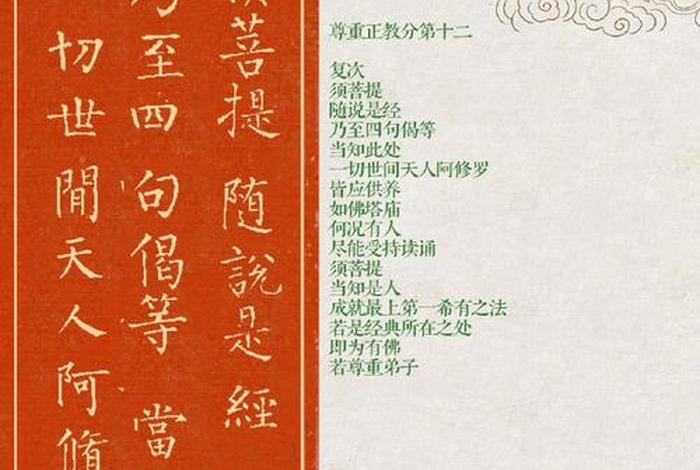 菩提随說是經
乃至四句偈等當
切世閒天人阿脩
尊重正教分第十二
复次
须菩提
随说是经
乃至四句偈等
当知此处
一切世间天人阿修罗
皆应供养
如佛塔庙
何况有人
尽能受持读诵
须菩提
当知是人
成就最上第一希有之法
若是经典所在之处
即为有佛
若尊重弟子